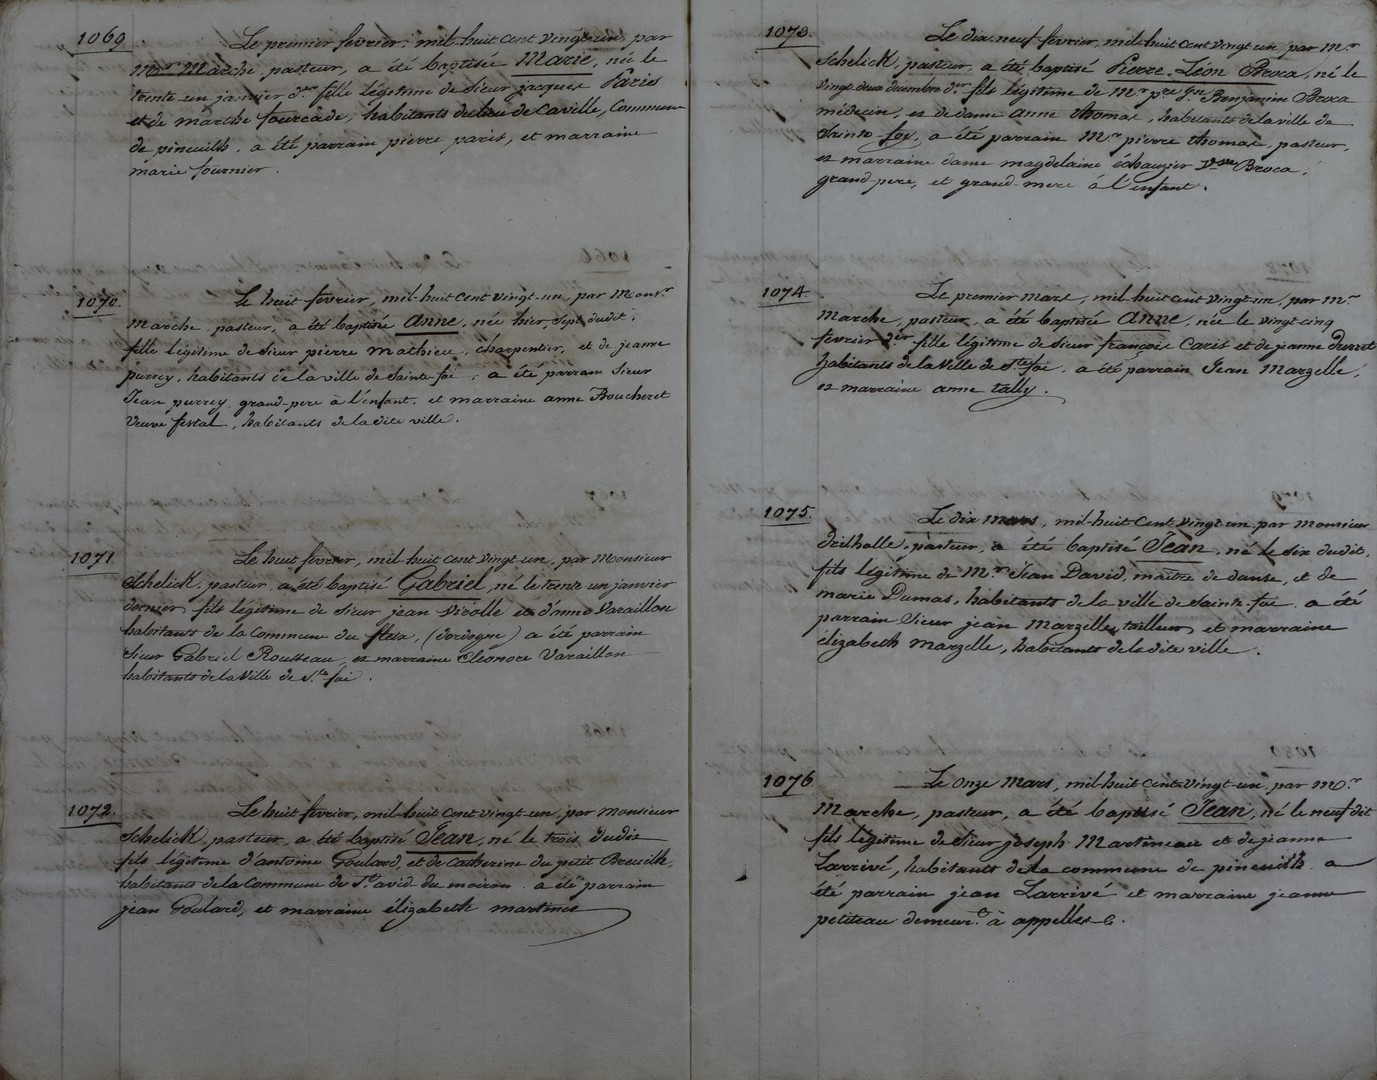 1069. Le premier fevrier, mil-huit cent vingt-un, par
Monsr Marche pasteur, a été baptisée Marie, née le
trente-un janvier der fille légitime de Sieur jacques Paris
et de marthe fourcade, habitants du lieu de Caville, Commune
de pineuilh. a été parrain pierre paris, et marraine
marie fournier.
1070. Le huit fevrier, mil-huit cent vingt-un, par Monsr
Marche, pasteur, a été baptisée Anne, née hier, sept dudit,
fille légitime de Sieur pierre Mathieu, charpentier, et de jeanne
purrey, habitants de la ville de Sainte-foi. a été parrain Sieur
Jean purrey, grand-pere à l'enfant, et marraine anne Boucheret
Veuve festal, habitants de la dite ville.
1071. Le huit fevrier, mil-huit cent vingt-un, par Monsieur
Schelick, pasteur, a été baptisé Gabriel, né le trente un janvier
dernier, fils légitime de Sieur jean Virolle et d'anne Varaillon
habitants de la Commune du fleix, (dordogne) a été parrain
Sieur Gabriel Rousseau, et marraine Eléonore Varaillon
habitants de la Ville de Ste foi.
1072. Le huit fevrier, mil-huit cent vingt-un, par Monsieur
Schelick, pasteur, a été baptisé Jean, né le trois dudit
fils légitime d'antoine Goulard, et de Catherine du petit Breuilh,
habitants de la Commune de St avid-du moiron. a été parrain
jean Goulard, et marraine élizabeth martines
1073. Le dix-neuf-fevrier, mil-huit cent vingt un, par Mr
Schelick, pasteur, a été baptisé Pierre-Léon Broca, né le
vingt deux décembre der fils légitime de Mr pre Benjamin Broca
médecin, et de dame anne thomas, habitants de la ville de
Sainte-foy, a été parrain Mr pierre thomas, pasteur,
et marraine dame magdelaine échauzier Vve Broca,
grand-pere, et grand-mere à l'enfant.
1074. Le premier mars, mil-huit cent vingt-un, par Mr
Marche, pasteur, a été baptisée Anne, née le vingt-cinq
fevrier der fille légitime de Sieur françois Caris et de jeanne Durret
habitants de la Ville de Ste foi. a été parrain Jean Marzelle,
et marraine anne tally.
1075. Le dix mars, mil-huit cent vingt-un par Monsieur
Drilholle, pasteur, a été baptisé Jean, né le six dudit,
fils légitime de Mr Jean David, maître de danse, et de
marie Dumas, habitants de la ville de Sainte-foi. a été
parrain Sieur jean Marzelle, tailleur, et marraine
élizabeth Marzelle, habitants de la dite ville.
1076 Le onze mars, mil-huit cent-vingt-un, par Mr
Marche, pasteur, a été baptisé Jean, né le neuf dit
fils légitime de Sieur joseph Martineau et de jeanne
Larrivé, habitants de la commune de pineuilh. a
été parrain jean Larrivé et marraine jeanne
petiteau demeurt à appelles.